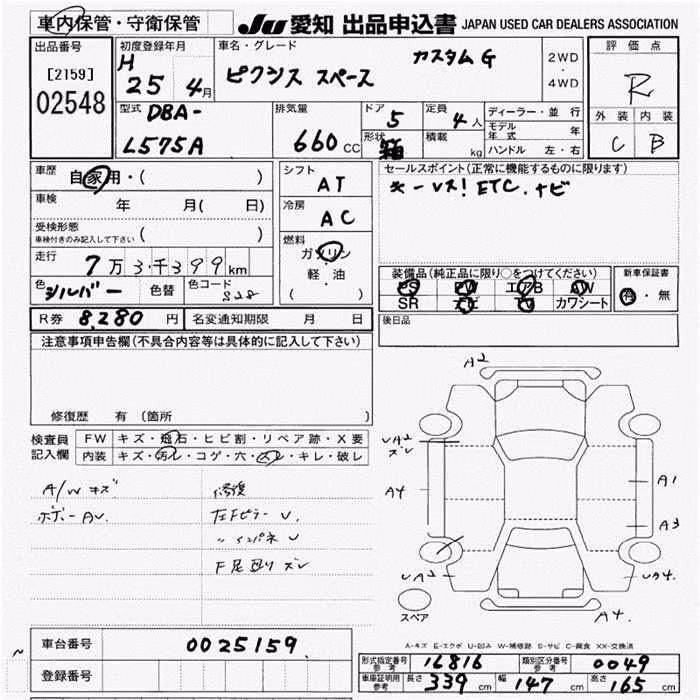 車内保管・守衛保管
JU 愛知 出品申込書 JAPAN USED CAR DEALERS ASSOCIATION
出品番号
[2159]
02548
初度登録年月
H 25 4月
車名・グレード
カスタム G
ピクシス スペース
2WD
・
4WD
評価点
R
外装 内装
C B
型式 DBA-
L575A
排気量
660 CC
ドア 5
形状 箱
定員 4人
積載 kg
ディーラー・並行
モデル年式 年
ハンドル 左・右
車歴 自家用・( )
車検 年 月( 日)
受検形態
車検付きのみ記入して下さい ( )
走行
7万3千399km
色 シルバー 色替 色コード S28
シフト
AT
冷房
AC
燃料
ガソリン
軽・油
( )
セールスポイント(正常に機能するものに限ります)
キーレス! ETC. ナビ
装備品(純正品に限り○をつけてください)
PS PW エアB AW
SR ナビ TV カワシート
新車保証書
有・無
R券 8,280円 名変通知期限 月 日
後日品
注意事項申告欄(不具合内容等は具体的に記入して下さい)
修復歴 有(箇所 )
検査員
記入欄
FW キズ・飛石・ヒビ割・リペア跡・X要
内装 キズ・汚レ・コゲ・穴・スレ・キレ・破レ
A/W キズ
ボデーAU.
修復
左Fピラー U.
〃 インパネ U
F足廻り ズレ
A2
UA2
ズレ
A4
A1
A3
UA2
U84.
スペア
A4.
A-キズ E-エクボ U-凹み W-補修跡 S-サビ C-腐食 XX-交換済
車台番号 0025159.
登録番号
形式指定番号参考 16816 類別区分番号参考 0049
車庫証明用参考 長さ 339 cm 幅 147 cm 高さ 165 cm